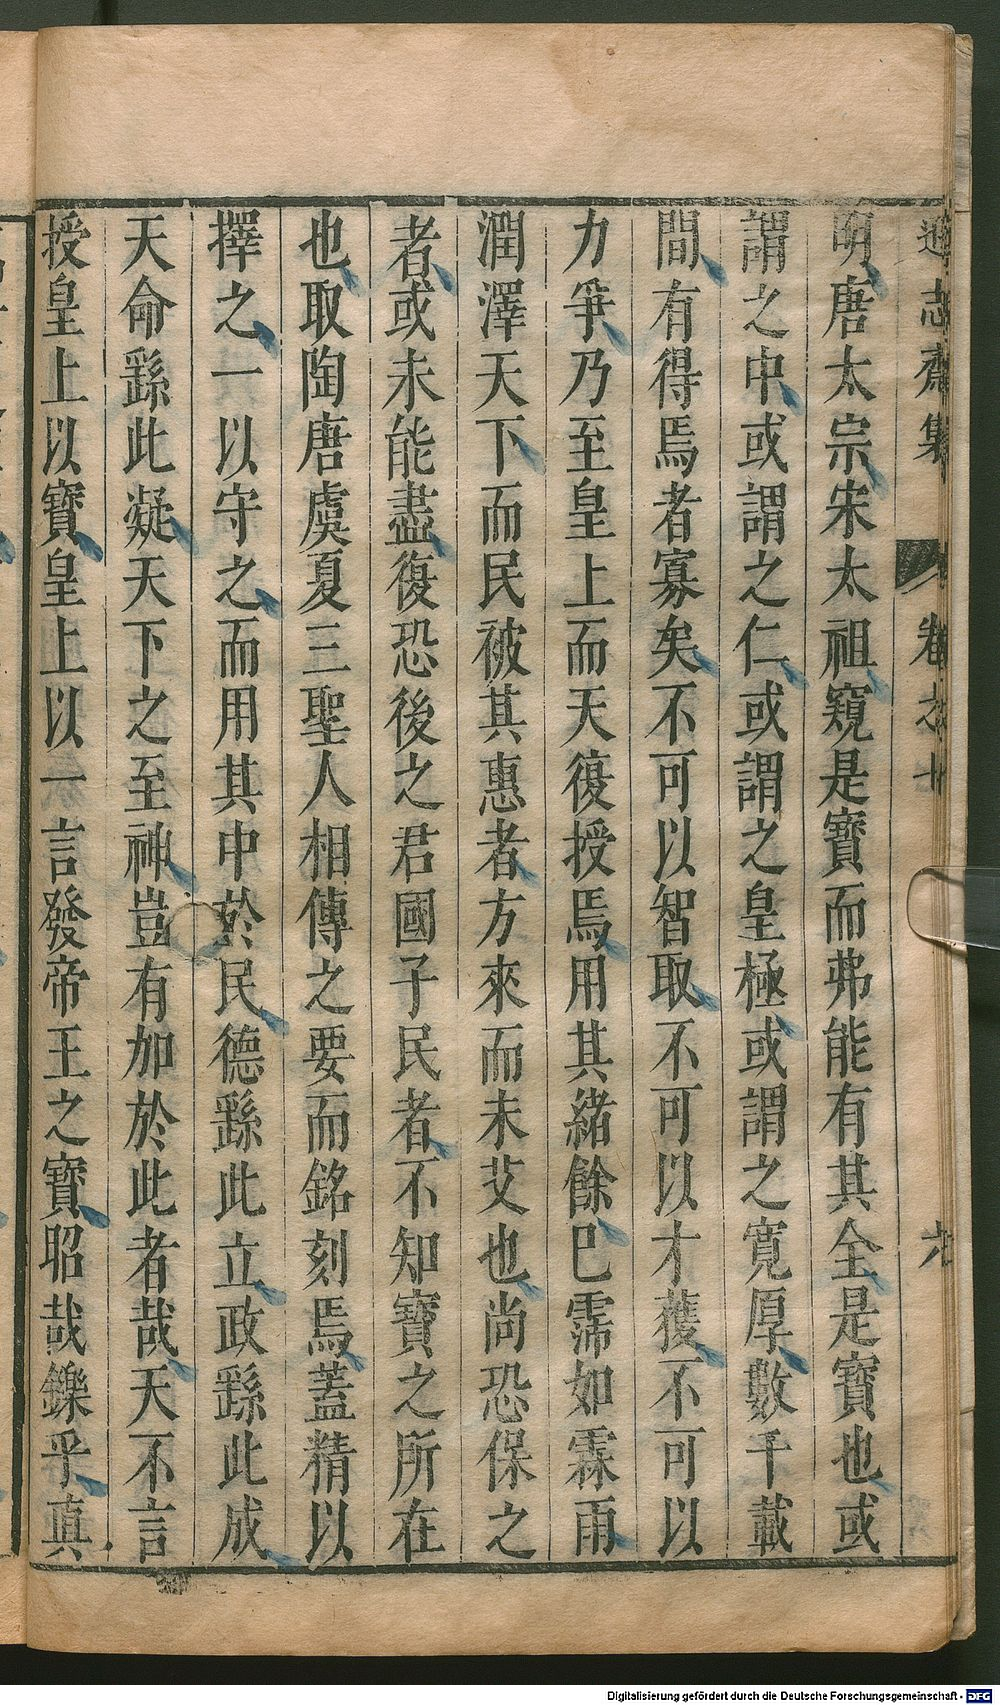 遜志齋集 卷之七 九
明唐太宗宋太祖窺是寶而弗能有其全是寶也或
謂之中或謂之仁或謂之皇極或謂之寬厚數千載
間有得焉者寡矣不可以智取不可以才獲不可以
力爭乃至皇上而天復授焉用其緒餘巳霈如霖雨
潤澤天下而民被其惠者方來而未艾也尚恐保之
者或未能盡復恐後之君國子民者不知寶之所在
也取陶唐虞夏三聖人相傳之要而銘刻焉蓋精以
擇之一以守之而用其中於民德繇此立政繇此成
天命繇此凝天下之至神豈有加於此者哉天不言
授皇上以寶皇上以一言發帝王之寶昭哉鑠乎真
Digitalisierung gefördert durch die Deutsche Forschungsgemeinschaft - DFG